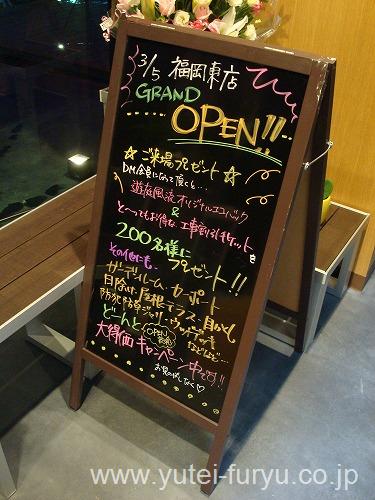 3/5 福岡東店
GRAND
OPEN!!...
☆ ご来場プレゼント ☆
DM会員になって頂くと…
遊庭風流オリジナルエコバック
&
と〜ってもお得な工事割引チケットを
200名様に
プレゼント!!
その他にも…
ガーデンルーム・カーポート
目隠し・屋根・テラス・
防犯防草ジャリ・ウッドデッキ
などなど…
ど〜んと OPEN
大特価キャンペーン中です!!
お見のがしなく♡
www.yutei-furyu.co.jp